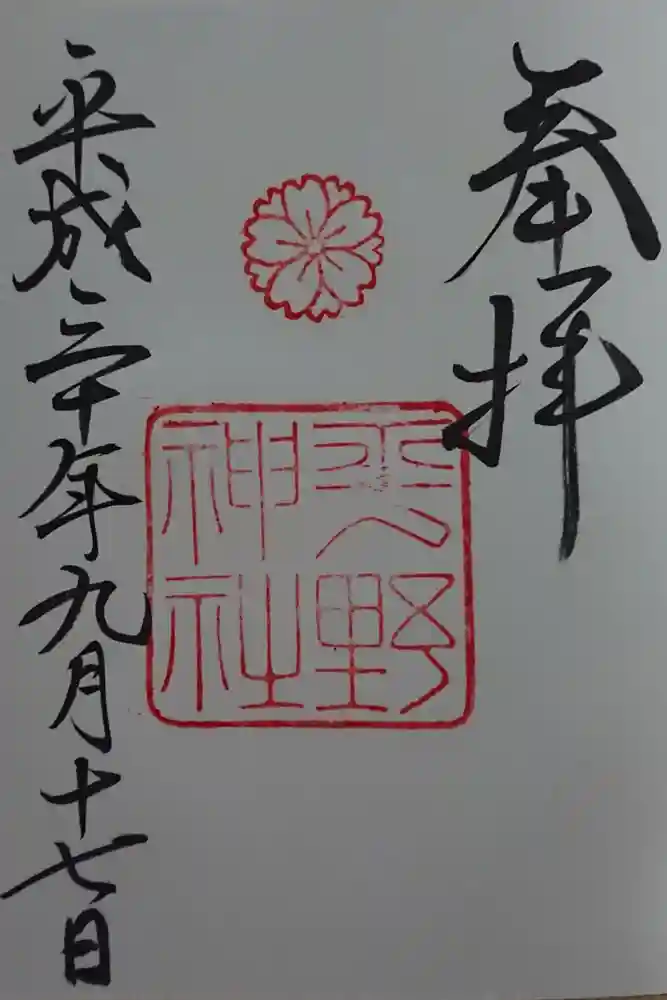 奉拝
平野
神社
平成三十年九月十七日